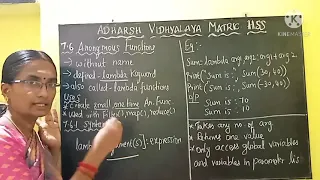 ADHARSH VIDHYALAYA MATRIC HSS
7.6 Anonymous Functions
→ without name
→ defined - lambda keyword
→ also called - lambda functions
Uses
* Create small one time An. Func
* used with Filter(), map(), reduce()
7.6.1 Syntax
lambda [argument(s)]: expression
Eg:
Sum = lambda arg1, arg2: arg1 + arg2
Print("Sum is:", Sum(30,40))
Print("Sum is:",
O/P
Sum is: 70
Sum is: 10
* Takes any no. of arg
* Returns one value
* Only access global variables
and variables in Parameter list
KINEMASTER